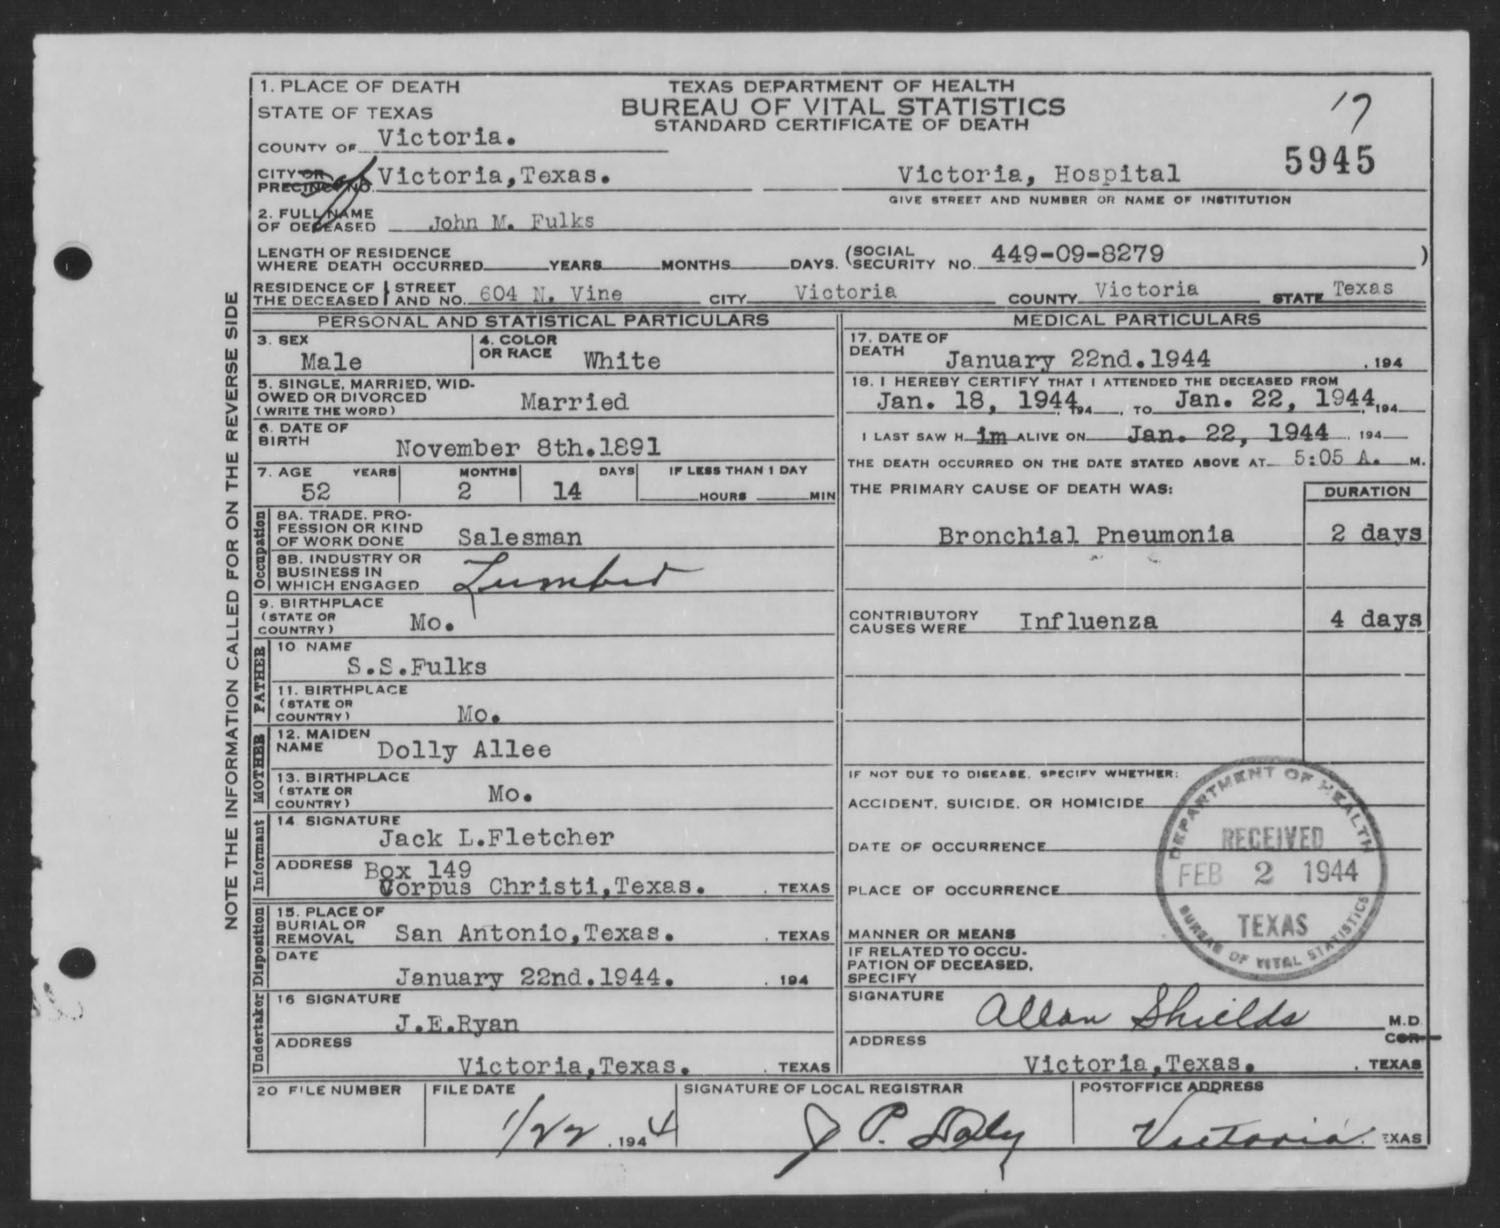 1. PLACE OF DEATH
STATE OF TEXAS
COUNTY OF Victoria.
TEXAS DEPARTMENT OF HEALTH
BUREAU OF VITAL STATISTICS
STANDARD CERTIFICATE OF DEATH
17
5945
CITY OR PRECINCT NO. Victoria,Texas.
Victoria, Hospital
GIVE STREET AND NUMBER OR NAME OF INSTITUTION
2. FULL NAME
OF DECEASED John M. Fulks
LENGTH OF RESIDENCE
WHERE DEATH OCCURRED YEARS MONTHS DAYS. (SOCIAL SECURITY NO. 449-09-8279 )
RESIDENCE OF THE DECEASED STREET AND NO. 604 N. Vine CITY Victoria COUNTY Victoria STATE Texas
NOTE THE INFORMATION CALLED FOR ON THE REVERSE SIDE
PERSONAL AND STATISTICAL PARTICULARS
3. SEX Male
4. COLOR OR RACE White
5. SINGLE, MARRIED, WID-
OWED OR DIVORCED
(WRITE THE WORD) Married
6. DATE OF
BIRTH November 8th.1891
7. AGE YEARS MONTHS DAYS IF LESS THAN 1 DAY
52 2 14 HOURS MIN
Occupation
8A. TRADE, PRO-
FESSION OR KIND
OF WORK DONE Salesman
8B. INDUSTRY OR
BUSINESS IN
WHICH ENGAGED Lumber
9. BIRTHPLACE
(STATE OR
COUNTRY) Mo.
FATHER
10 NAME
S.S.Fulks
11. BIRTHPLACE
(STATE OR
COUNTRY) Mo.
MOTHER
12. MAIDEN
NAME Dolly Allee
13. BIRTHPLACE
(STATE OR
COUNTRY) Mo.
Informant
14 SIGNATURE
Jack L.Fletcher
ADDRESS Box 149
Corpus Christi,Texas. , TEXAS
Disposition
15. PLACE OF
BURIAL OR
REMOVAL San Antonio,Texas. , TEXAS
DATE
January 22nd.1944. , 194
Undertaker
16 SIGNATURE
J.E.Ryan
ADDRESS
Victoria,Texas. , TEXAS
MEDICAL PARTICULARS
17. DATE OF
DEATH January 22nd.1944 , 194
18. I HEREBY CERTIFY THAT I ATTENDED THE DECEASED FROM
Jan. 18, 1944, 194 , TO Jan. 22, 1944, 194
I LAST SAW H im ALIVE ON Jan. 22, 1944 , 194
THE DEATH OCCURRED ON THE DATE STATED ABOVE AT 5:05 A. M.
THE PRIMARY CAUSE OF DEATH WAS: DURATION
Bronchial Pneumonia 2 days
CONTRIBUTORY
CAUSES WERE Influenza 4 days
IF NOT DUE TO DISEASE, SPECIFY WHETHER:
ACCIDENT, SUICIDE, OR HOMICIDE
DATE OF OCCURRENCE
PLACE OF OCCURRENCE
MANNER OR MEANS
IF RELATED TO OCCU-
PATION OF DECEASED,
SPECIFY
DEPARTMENT OF HEALTH
RECEIVED
FEB 2 1944
TEXAS
BUREAU OF VITAL STATISTICS
SIGNATURE Allan Shields M.D.
COR
ADDRESS
Victoria,Texas. , TEXAS
20 FILE NUMBER
FILE DATE
1/22 , 1944
SIGNATURE OF LOCAL REGISTRAR
J P. Daly
POSTOFFICE ADDRESS
Victoria EXAS